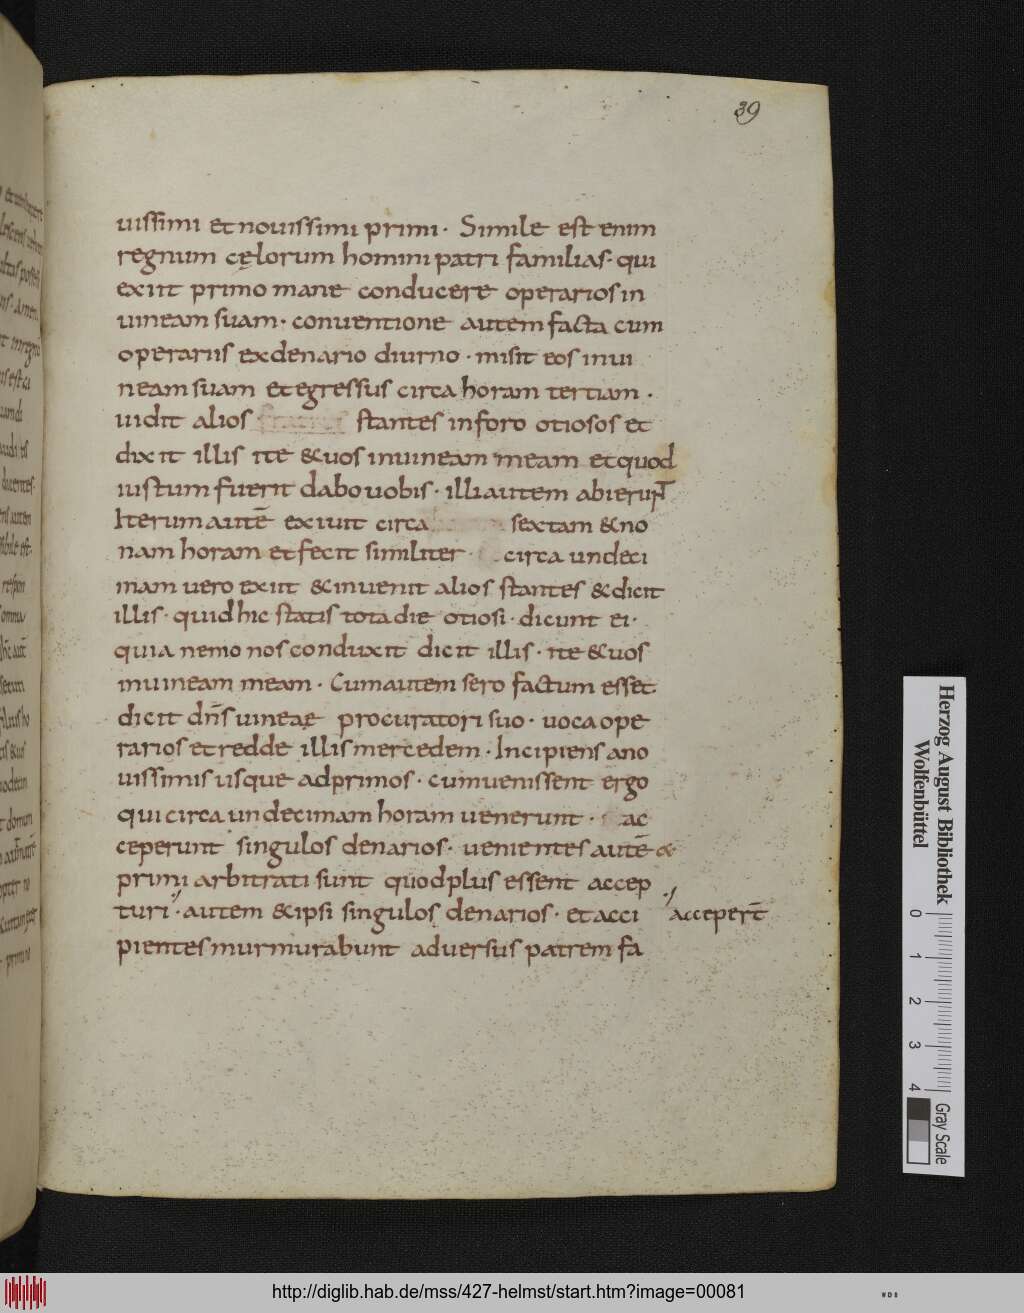 39
uissimi et nouissimi primi · Simile est enim
regnum cęlorum homini patri familias · qui
exiit primo mane conducere operarios in
uineam suam · conuentione autem facta cum
operariis ex denario diurno · misit eos in ui
neam suam et egressus circa horam tertiam ·
uidit alios stantes in foro otiosos et
dixit illis ite & uos in uineam meam et quod
iustum fuerit dabo uobis · illi autem abierunt
Iterum autē exiuit circa sextam & no
nam horam et fecit similiter · circa undeci
mam uero exiit & inuenit alios stantes & dicit
illis · quid hic statis tota die otiosi · dicunt ei ·
quia nemo nos conduxit dicit illis · ite & uos
in uineam meam · Cum autem sero factum esset
dicit dn̄s uineae procuratori suo · uoca ope
rarios et redde illis mercedem · Incipiens a no
uissimis usque ad primos · cum uenissent ergo
qui circa undecimam horam uenerunt · ac
ceperunt singulos denarios · uenientes autē &
primi arbitrati sunt quod plus essent accep
turi · autem & ipsi singulos denarios · et acci acceper̄t
pientes murmurabunt aduersus patrem fa
Herzog August Bibliothek
Wolfenbüttel
0 1 2 3 4
Gray Scale
http://diglib.hab.de/mss/427-helmst/start.htm?image=00081